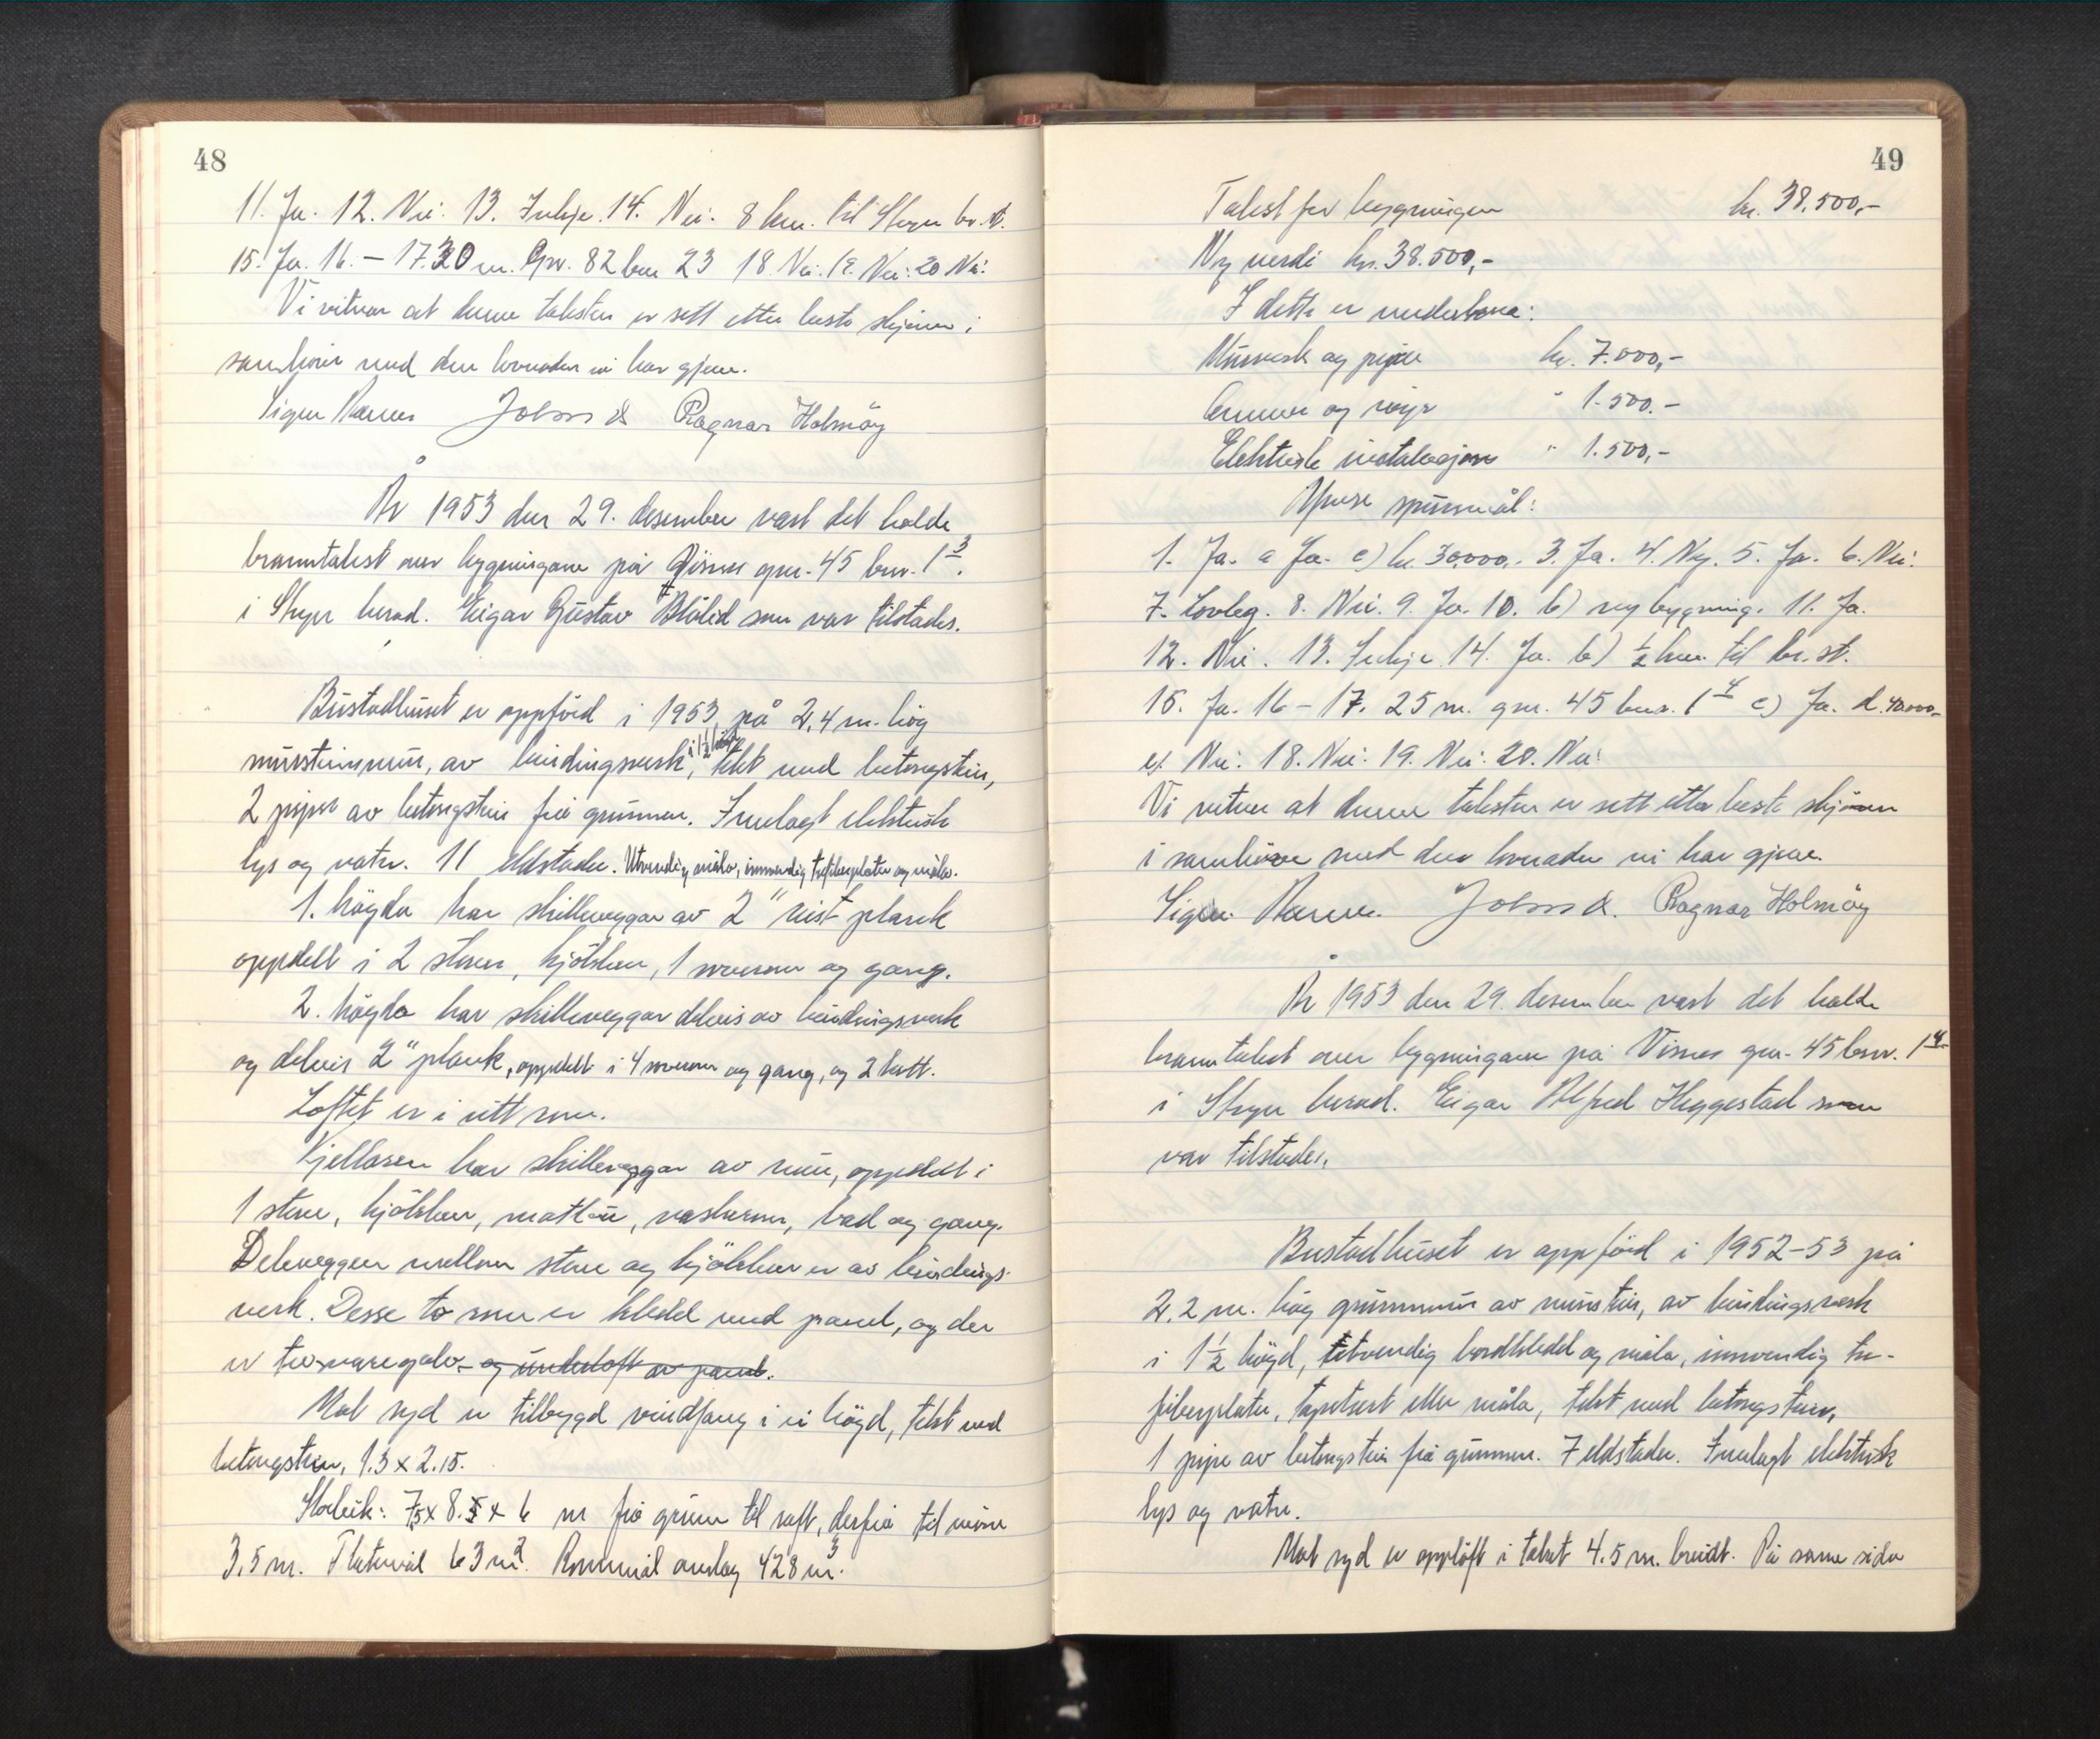 48
11. Ja. 12. Nei. 13. Inkje. 14. Nei. 8 km. til Stryn br.st.
15. Ja. 16. – 17. 30 m. Gnr. 82 bnr 23 18. Nei. 19. Nei. 20 Nei.
Vi vitnar at denne taksten er sett etter beste skjønn i
samhøve med den lovnaden vi har gjeve.
Ragnar Holmöy
År 1953 den 29. desember vart det halde
branntakst over bygningane på Visnes gnr. 45 bnr. 1 3.
i Stryn herad. Eigar Gustav Blålid som var tilstades.
Bustadhuset er oppförd i 1953, på 2,4 m. hög
mursteinsmur, av bindingsverk, i 1 1/2 högd, tekt med betongstein,
2 piper av betongstein frå grunnen. Innlagt elektrisk
lys og vatn. 11 eldstader. Utvendig måla, innvendig trefiberplater og måla.
1. högda har skilleveggar av 2" reist plank
oppdelt i 2 stover, kjökken, 1 soverom og gang.
2. högda har skilleveggar delvis av bindingsverk
og delvis 2" plank, oppdelt i 4 soverom og gang, og 2 kott.
Loftet er i eitt rom.
Kjellaren har skilleveggar av mur, oppdelt i
1 stove, kjökken, matbu, vaskerom, bad og gang.
Deleveggen mellom stove og kjökken er av bindings-
verk. Desse to rom er kledd med panel, og der
er tro-vare golv og underloft av panel.
Mot syd er tilbygd vindfang i ei högd, tekt med
betongstein, 1.3 x 2.15.
Storleik: 7,5 x 8.5 x 6 m frå grunn til raft, derfrå til møne
3,5 m. Flatemål 63 m2. Rommål omlag 428 m3.
49
Takst for bygningen kr. 38.500,-
Ny verdi kr. 38.500,-
I dette er medrekna:
Murverk og piper kr. 7.000,-
Omnar og røyr " 1.500.-
Elektrisk installasjon " 1.500,-
Ymse spursmål:
1. Ja. a Ja. c) kr. 30.000,- 3. Ja. 4. Ny. 5. Ja. 6. Nei.
7. Lovleg. 8. Nei. 9. Ja. 10. b) nybygning. 11. Ja.
12. Nei. 13. Inkje 14. Ja. b) 1/2 km. til br. st.
15. Ja. 16 – 17. 25 m. gnr. 45 bnr. 1 4 c) Ja. d. 40000,-
e) Nei. 18. Nei. 19. Nei. 20. Nei.
Vi vitnar at denne taksten er sett etter beste skjønn
i samhöve med den lovnaden vi har gjeve.
Ragnar Holmöy
År 1953 den 29. desember vart det halde
branntakst over bygningane på Visnes gnr. 45 bnr. 1 4
i Stryn herad. Eigar Alfred Heggestad som
var tilstades.
Bustadhuset er oppförd i 1952-53 på
2,2 m. hög grunnmur av murstein, av bindingsverk
i 1 1/2 högd, utvendig bordkledd og måla, innvendig tre-
fiberplater, tapetsert eller måla, tekt med betongstein,
1 pipe av betongstein frå grunnen. 7 eldstader. Innlagt elektrisk
lys og vatn.
Mot syd er opplöft i taket 4.5 m. breidt. På same sida